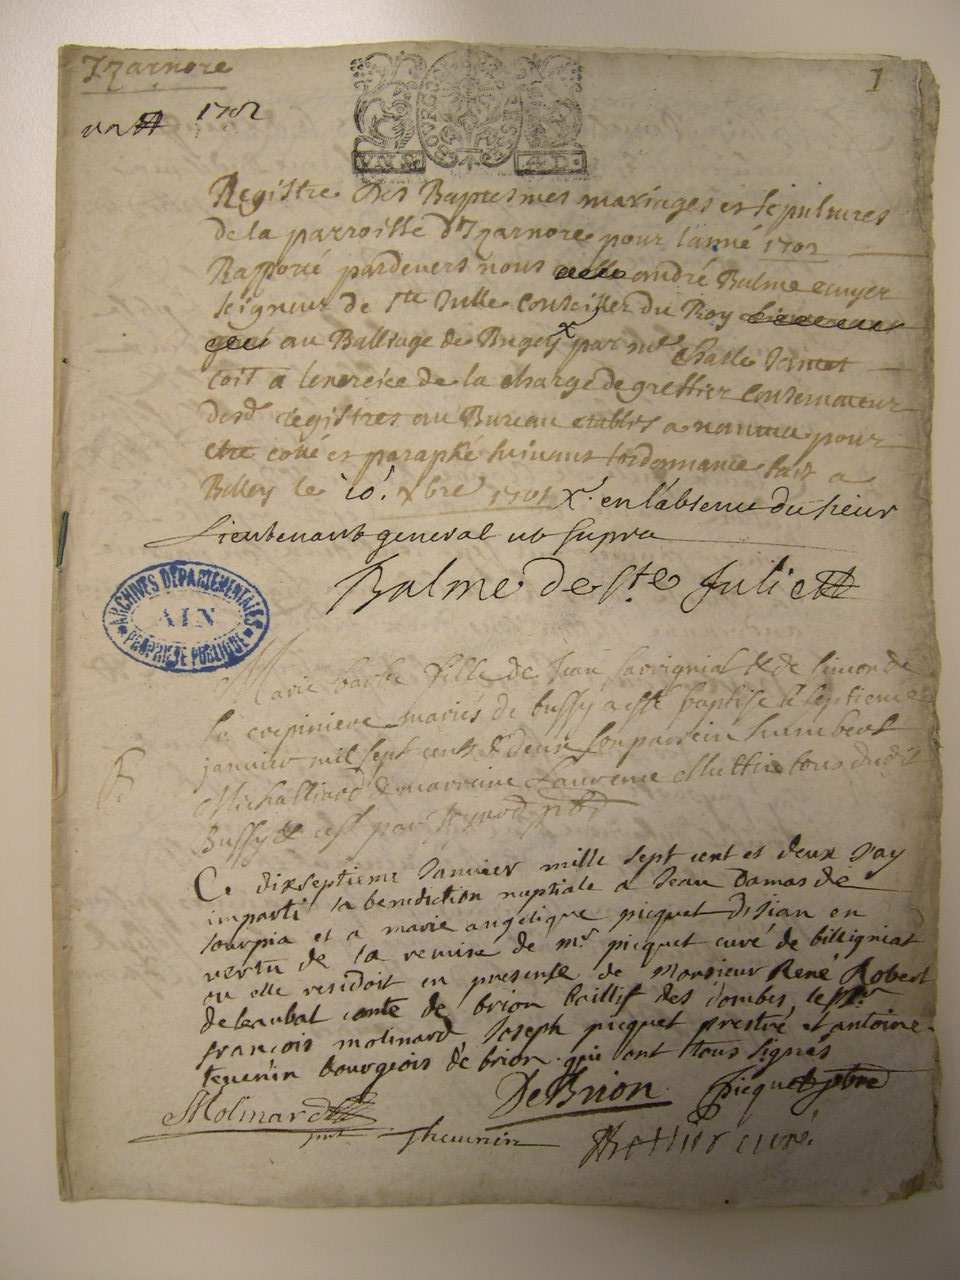 Izarnore
1
1702
BOURGOGNE BRESSE
PAYS AD.
Registre des Baptesmes mariages et sepultures
de la parroisse d'Izarnore pour l'anné 1702
Rapporté pardevers nous andré Balme escuyer
seigneur de Ste Julle Conseiller du Roy
au Balliage de Bugey par mr
toit a l'exercice de la charge de greffier Conservateur
desd registres au Bureau etablis a nantua pour
etre coté et paraphé suivant l'ordonnance fait a
Belley le 10. xbre 1701 X. en l'absence du sieur
Lieutenant general ut supra
Balme de Ste Julie
ARCHINES DÉPARTEMENTALES
AIN
PROPRIÉTÉ PUBLIQUE
Marie fille de Jean & de
maries de bussy a esté baptisé le septieme
janvier mil sept cents & deux son parrein humbert
Michalliard & marreine Laurence tous dudit
Bussy & c'est par
Ce dixseptieme Janvier mille sept cent et deux j'ay
imparti la benediction nuptiale a Jean Damas de
tournia et a marie angelique picquet disian en
vertu de la remise de mr picquet curé de billigniat
ou elle residoit en presense de Monsieur René Robert
delaubat comte de brion baillif des dombes, le sr
françois molinard Joseph picquet prestre et antoine
tevenin bourgeois de brion qui ont tous signés
Molinard DeBrion Picquet ptre
Thevenin curé